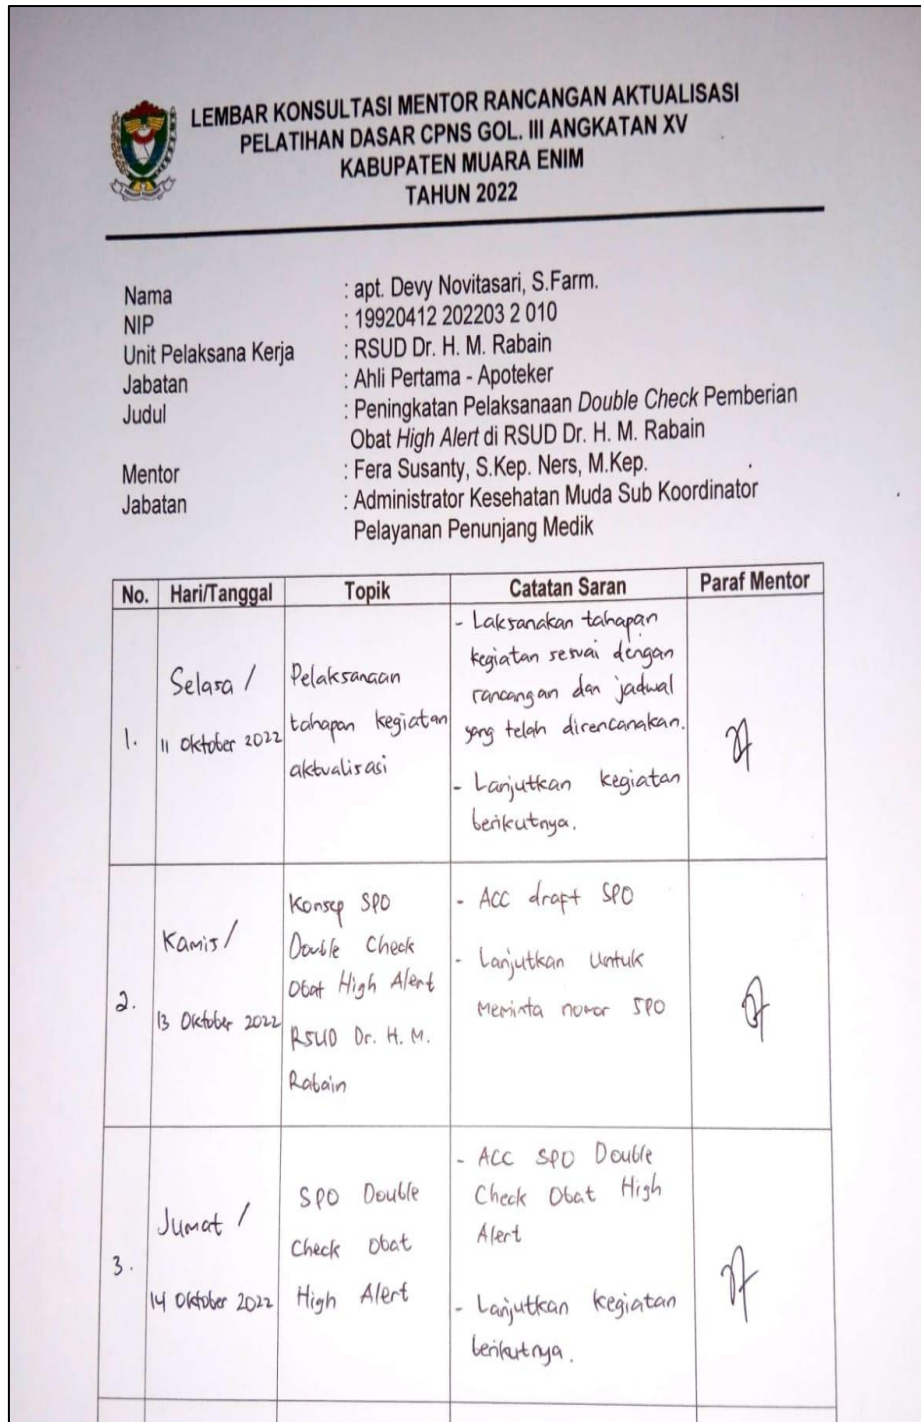 LEMBAR KONSULTASI MENTOR RANCANGAN AKTUALISASI
PELATIHAN DASAR CPNS GOL. III ANGKATAN XV
KABUPATEN MUARA ENIM
TAHUN 2022
Nama : apt. Devy Novitasari, S.Farm.
NIP : 19920412 202203 2 010
Unit Pelaksana Kerja : RSUD Dr. H. M. Rabain
Jabatan : Ahli Pertama - Apoteker
Judul : Peningkatan Pelaksanaan Double Check Pemberian
Obat High Alert di RSUD Dr. H. M. Rabain
Mentor : Fera Susanty, S.Kep. Ners, M.Kep.
Jabatan : Administrator Kesehatan Muda Sub Koordinator
Pelayanan Penunjang Medik
No. Hari/Tanggal Topik Catatan Saran Paraf Mentor
1.
Selasa /
11 Oktober 2022
Pelaksanaan
tahapan kegiatan
aktualisasi
- Laksanakan tahapan
kegiatan sesuai dengan
rancangan dan jadwal
yang telah direncanakan.
- Lanjutkan kegiatan
berikutnya.
2.
Kamis /
13 Oktober 2022
Konsep SPO
Double Check
Obat High Alert
RSUD Dr. H. M.
Rabain
- ACC draft SPO
- Lanjutkan Untuk
Meminta nomor SPO
3.
Jumat /
14 Oktober 2022
SPO Double
Check Obat
High Alert
- ACC SPO Double
Check Obat High
Alert
- Lanjutkan kegiatan
berikutnya.